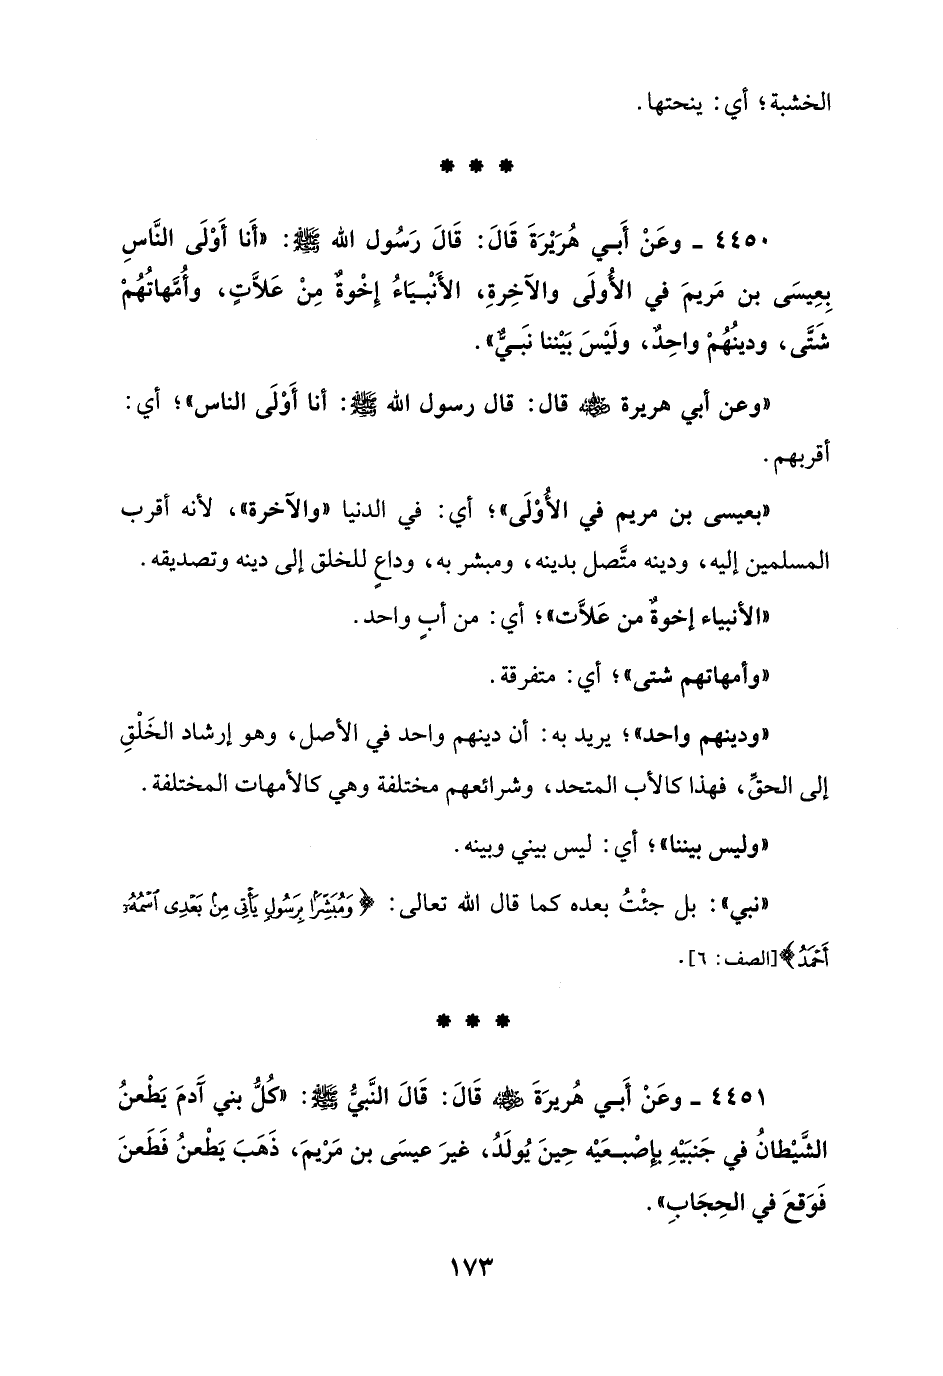 الخشبة؛ أي: ينحتها.
* * *
٤٤٥٠ ـ وعَنْ أَبي هُرَيْرَةَ قَالَ: قَالَ رَسُول الله ﷺ: «أَنا أَوْلَى النَّاسِ
بِعِيسَى بن مَريمَ في الأُولَى والآخِرةِ، الأَنْبيَاءُ إِخْوةٌ مِنْ عَلاَّتٍ، وأُمَّهاتُهُمْ
شَتَّى، ودينُهُمْ واحِدٌ، ولَيْسَ بَيْننا نَبيٌّ».
«وعن أبي هريرة ﵁ قال: قال رسول الله ﷺ: أنا أَوْلَى الناس»؛ أي:
أقربهم.
«بعيسى بن مريم في الأُوْلَى»؛ أي: في الدنيا «والآخرة»، لأنه أقرب
المسلمين إليه، ودينه متَّصل بدينه، ومبشر به، وداعٍ للخلق إلى دينه وتصديقه.
«الأنبياء إخوةٌ من عَلاَّت»؛ أي: من أبٍ واحد.
«وأمهاتهم شتى»؛ أي: متفرقة.
«ودينهم واحد»؛ يريد به: أن دينهم واحد في الأصل، وهو إرشاد الخَلْقِ
إلى الحقِّ، فهذا كالأب المتحد، وشرائعهم مختلفة وهي كالأمهات المختلفة.
«وليس بيننا»؛ أي: ليس بيني وبينه.
«نبي»: بل جئْتُ بعده كما قال الله تعالى: ﴿وَمُبَشِّرًا بِرَسُولٍ يَأْتِى مِنۢ بَعْدِى ٱسْمُهُۥٓ
أَحْمَدُ﴾[الصف: ٦].
* * *
٤٤٥١ ـ وعَنْ أَبي هُريرَةَ ﵁ قَالَ: قَالَ النَّبيُّ ﷺ: «كُلُّ بني آَدمَ يَطْعنُ
الشَّيْطانُ في جَنبَيْهِ بإِصْبعَيْه حِينَ يُولَدُ، غيرَ عيسَى بن مَرْيمَ، ذَهَبَ يَطْعنُ فَطَعنَ
فَوَقعَ في الحِجَابِ».
١٧٣